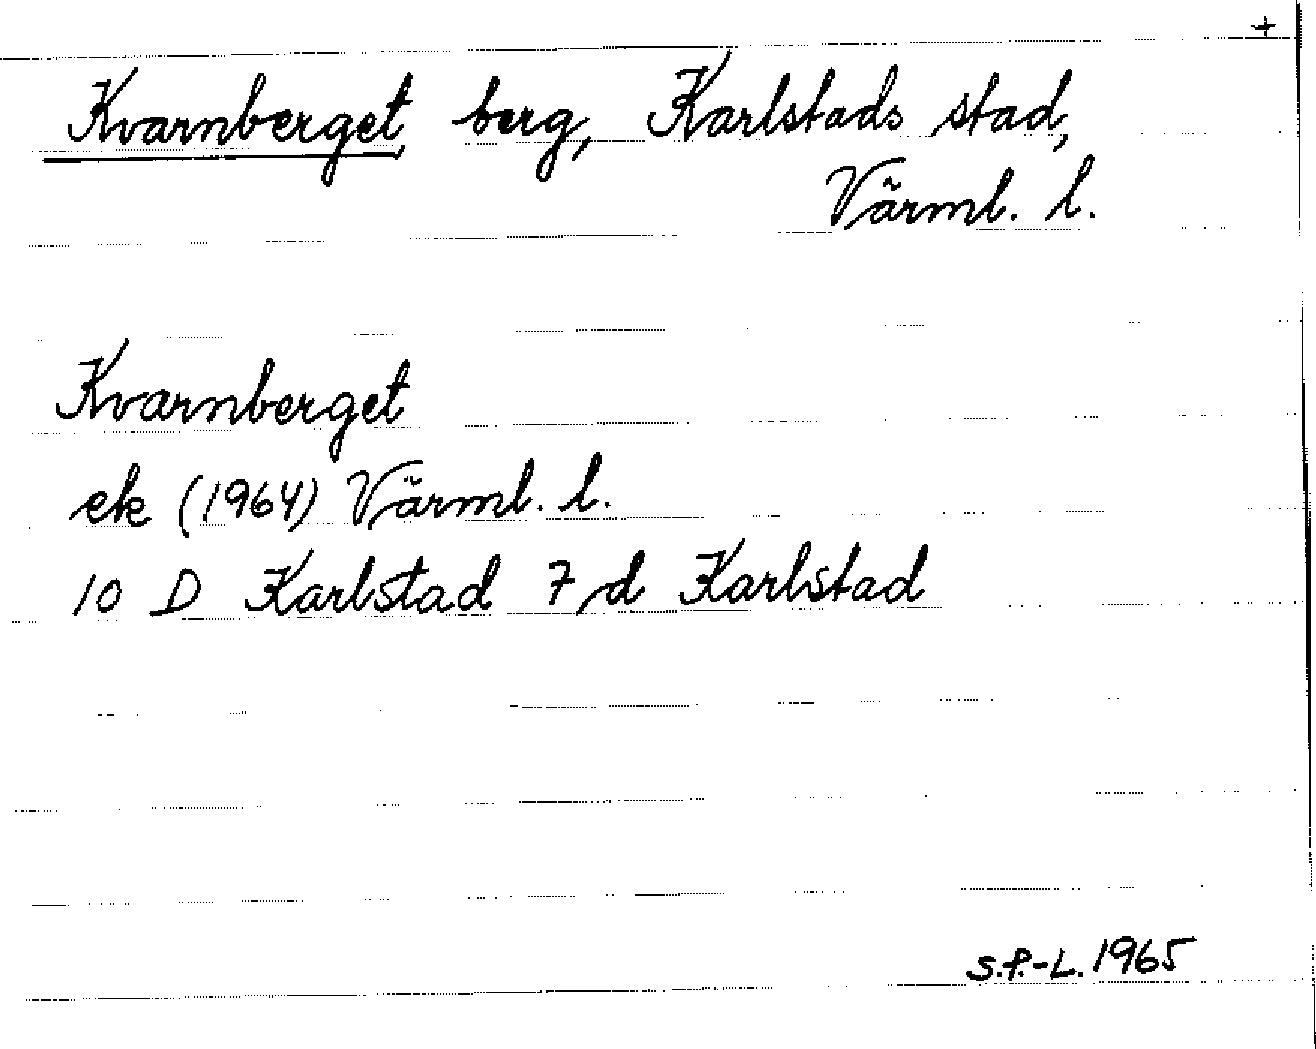 +
Kvarnberget, berg, Karlstads stad,
Värml. l.
Kvarnberget
ek (1964) Värml. l.
10 D Karlstad 7 d Karlstad
S.P.-L. 1965